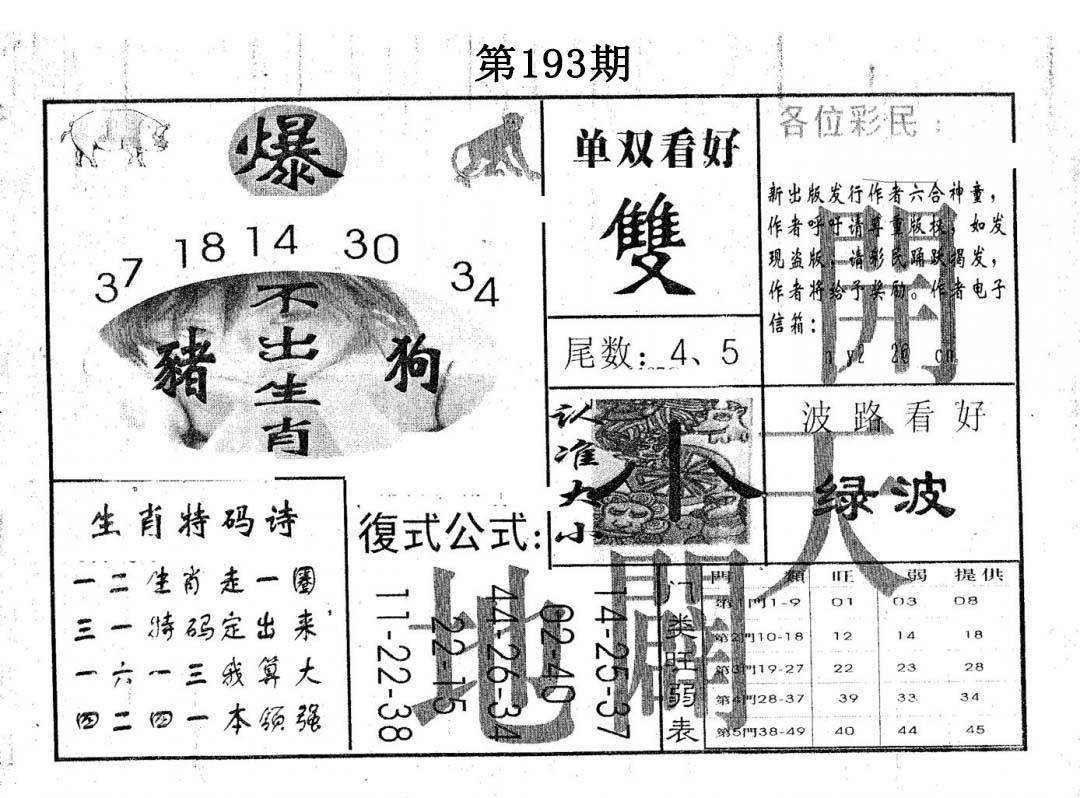 第193期
爆
37 18 14 30 34
不出生肖
豬
狗
单双看好
雙
尾数：4、5
各位彩民：
新出版发行作者六合神童，
作者呼吁请尊重版权，如发
现盗版，请彩民踊跃揭发，
作者将给予奖励。作者电子
信箱：
開
天
闢
地
认准大小
小
波路看好
绿波
生肖特码诗
一二生肖走一圈
三一特码定出来
一六一三我算大
四二四一本领强
復式公式：
11-22-38
22-15
44-26-34
02-40
14-25-37
门类旺弱表
門類 旺 弱 提供
第1門1-9 01 03 08
第2門10-18 12 14 18
第3門19-27 22 23 28
第4門28-37 39 33 34
第5門38-49 40 44 45